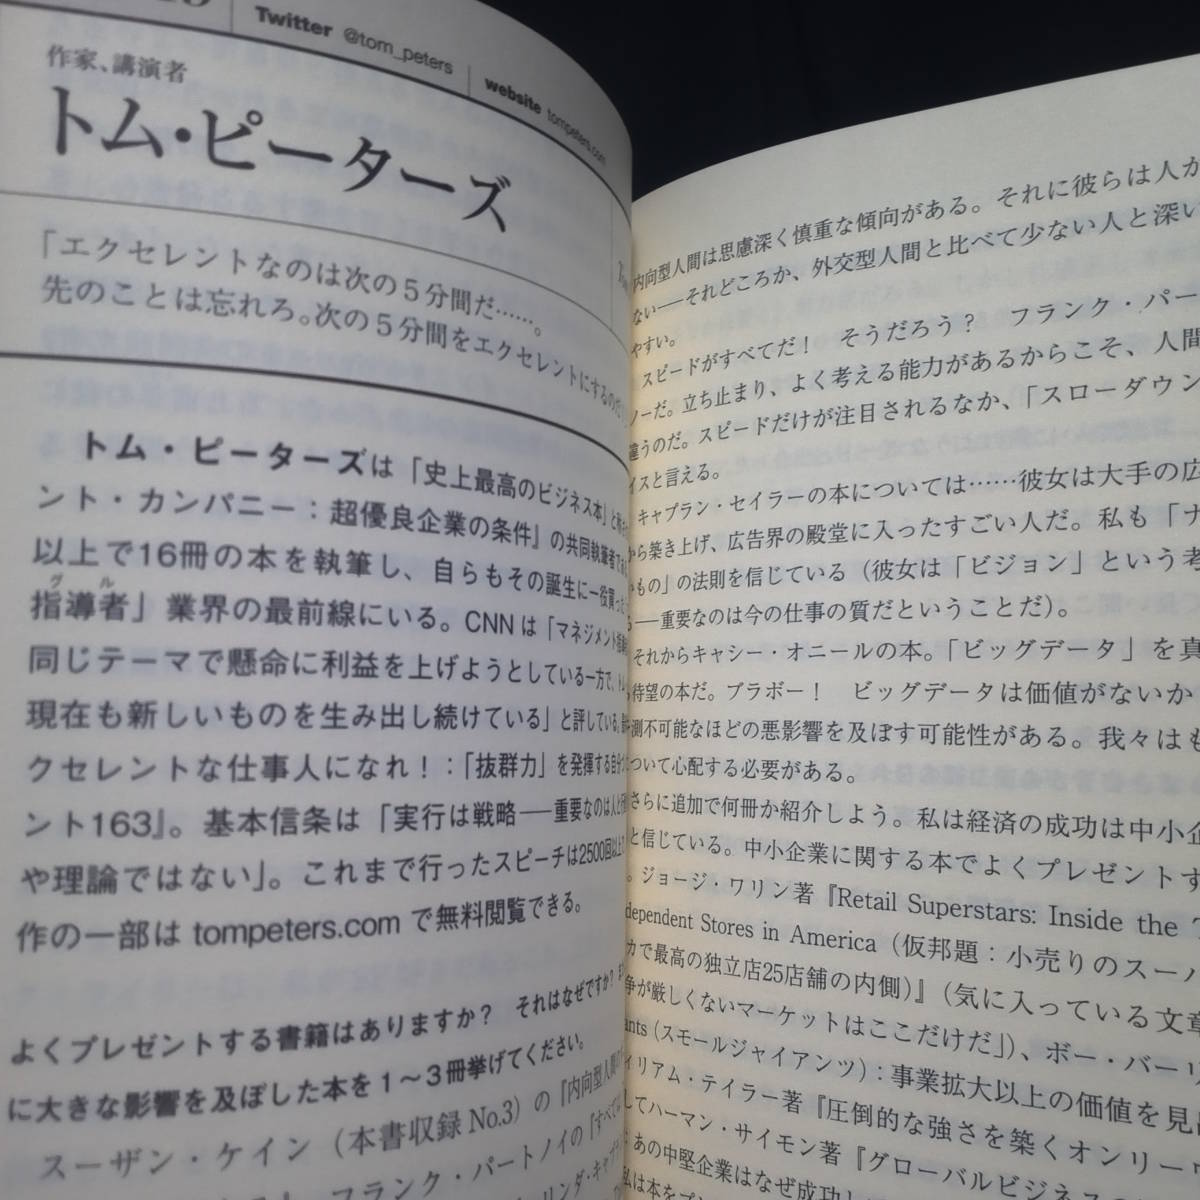 Twitter @tom_peters
website tompeters.com
作家、講演者
トム・ピーターズ
「エクセレントなのは次の5分間だ……。
先のことは忘れろ。次の5分間をエクセレントにするのだ
トム・ピーターズは「史上最高のビジネス本」と
ント・カンパニー：超優良企業の条件』の共同執筆者で
以上で16冊の本を執筆し、自らもその誕生に一役買った
グル
指導者」業界の最前線にいる。CNNは「マネジメント
同じテーマで懸命に利益を上げようとしている一方で、
現在も新しいものを生み出し続けている」と評している。
クセレントな仕事人になれ！：「抜群力」を発揮する自分
ント163』。基本信条は「実行は戦略――重要なのは人と
や理論ではない」。これまで行ったスピーチは2500回以上
作の一部は tompeters.com で無料閲覧できる。
よくプレゼントする書籍はありますか？　それはなぜですか？
に大きな影響を及ぼした本を1～3冊挙げてください。
スーザン・ケイン（本書収録 No.3）の『内向型人間の
フランク・パートノイの『すべては
リンダ・キャプラン
内向型人間は思慮深く慎重な傾向がある。それに彼らは人が
ない――それどころか、外交型人間と比べて少ない人と深い
やすい。
スピードがすべてだ！　そうだろう？　フランク・パー
ノーだ。立ち止まり、よく考える能力があるからこそ、人間
違うのだ。スピードだけが注目されるなか、「スローダウン
イスと言える。
・キャプラン・セイラーの本については……彼女は大手の広
から築き上げ、広告界の殿堂に入ったすごい人だ。私も「ナ
いもの」の法則を信じている（彼女は「ビジョン」という考
る――重要なのは今の仕事の質だということだ）。
それからキャシー・オニールの本。「ビッグデータ」を真
待望の本だ。ブラボー！　ビッグデータは価値がないか
測不可能なほどの悪影響を及ぼす可能性がある。我々はも
ついて心配する必要がある。
さらに追加で何冊か紹介しよう。私は経済の成功は中小企
と信じている。中小企業に関する本でよくプレゼントす
。ジョージ・ワリン著『Retail Superstars: Inside the
dependent Stores in America（仮邦題：小売りのスーパ
カで最高の独立店25店舗の内側）』（気に入っている文章
争が厳しくないマーケットはここだけだ」）、ボー・バーリ
ants（スモールジャイアンツ）：事業拡大以上の価値を見
ィリアム・テイラー著『圧倒的な強さを築くオンリーワ
してハーマン・サイモン著『グローバルビジネス
：あの中堅企業はなぜ成功し
私は本をプ